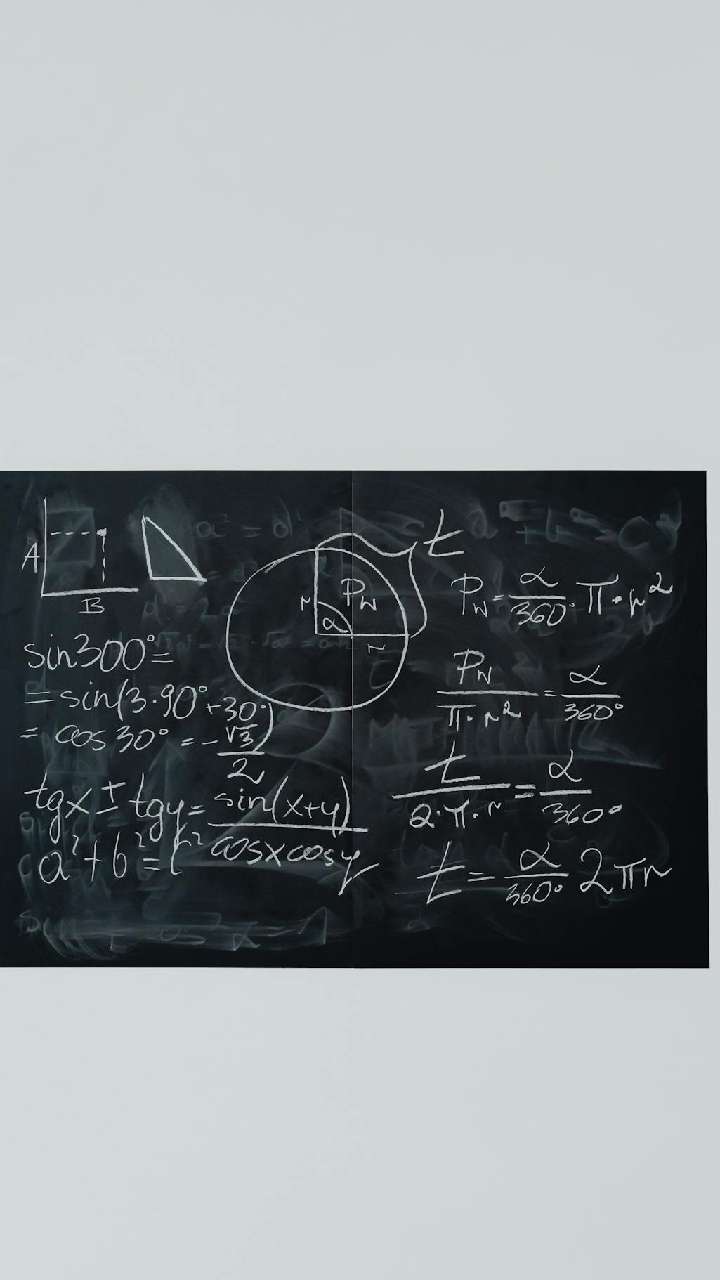 A
B
sin300°=
= sin(3·90°+30°)
= cos30° = -√3/2
tgx ± tgy = sin(x+y)/cosxcosy
a²+b²=c²
t
r
Pw
α
r
Pw = α/360° · π · r²
Pw/π · r² = α/360°
t/2 · π · r = α/360°
t = α/360° 2πr